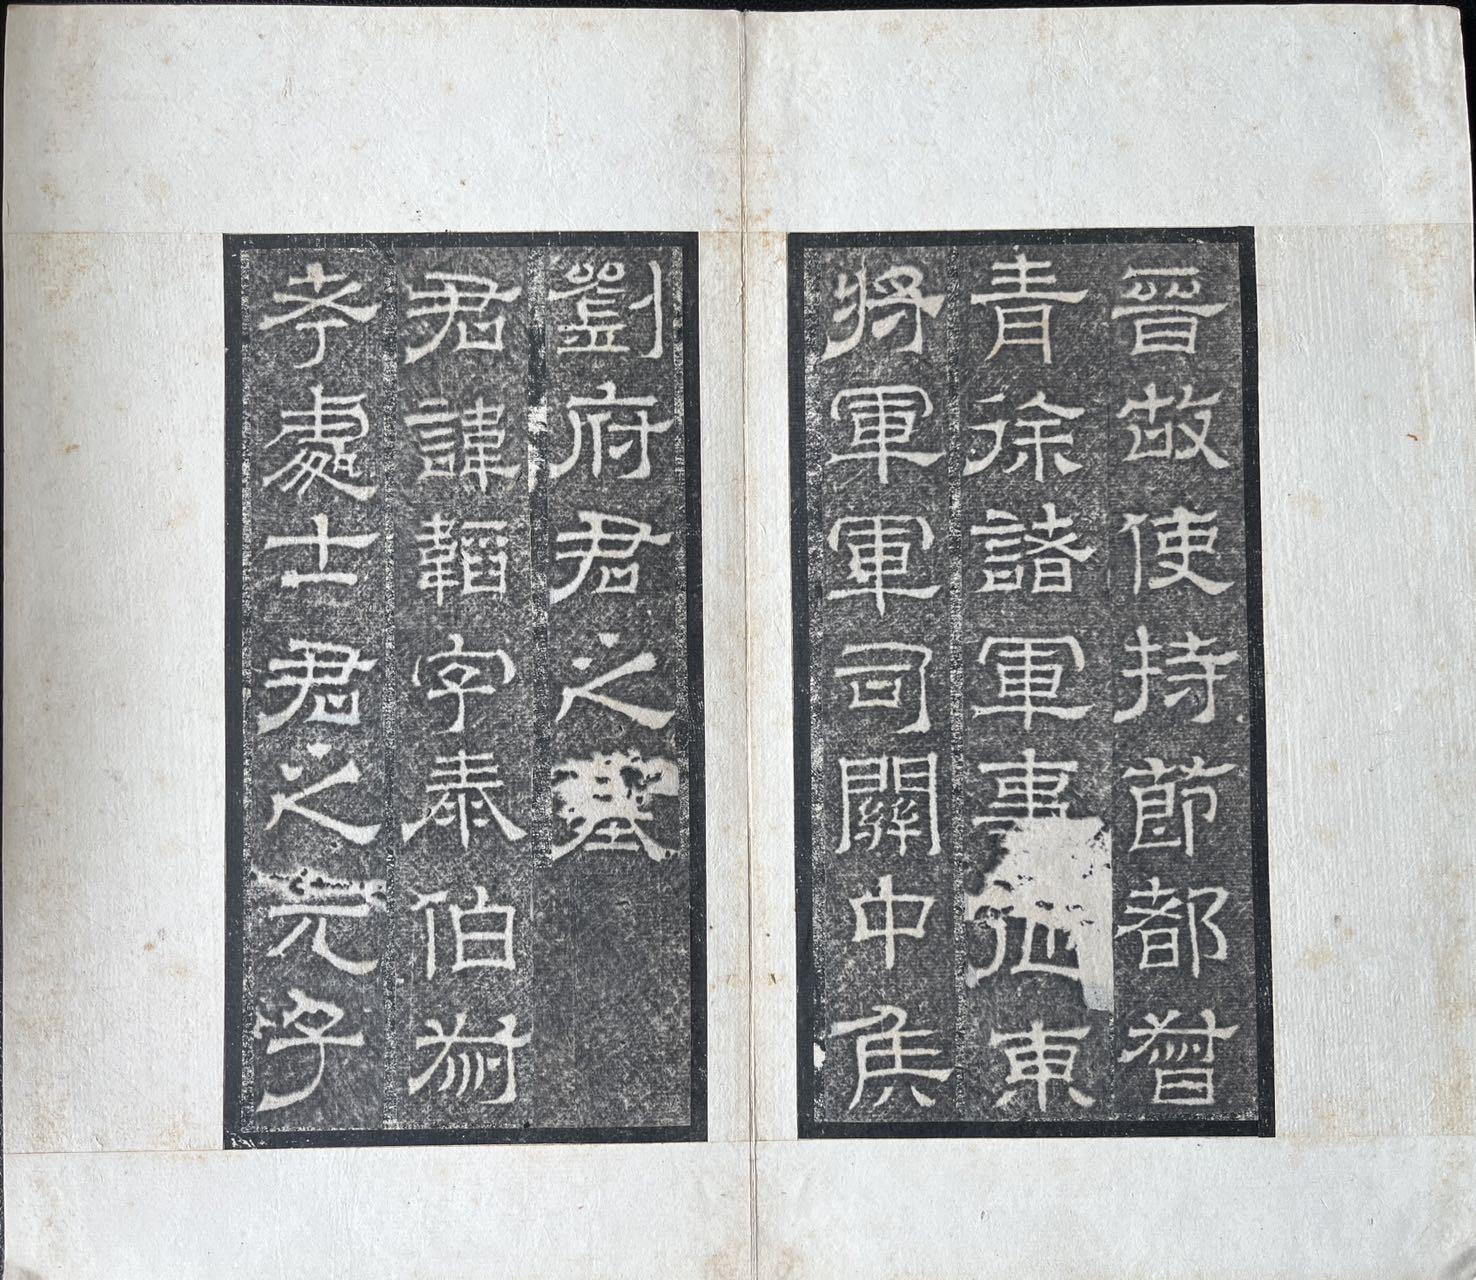 晉故使持節都督
青徐諸軍事征東
將軍軍司關中侯
劉府君之墓
君諱韜字泰伯叔
考處士君之元子